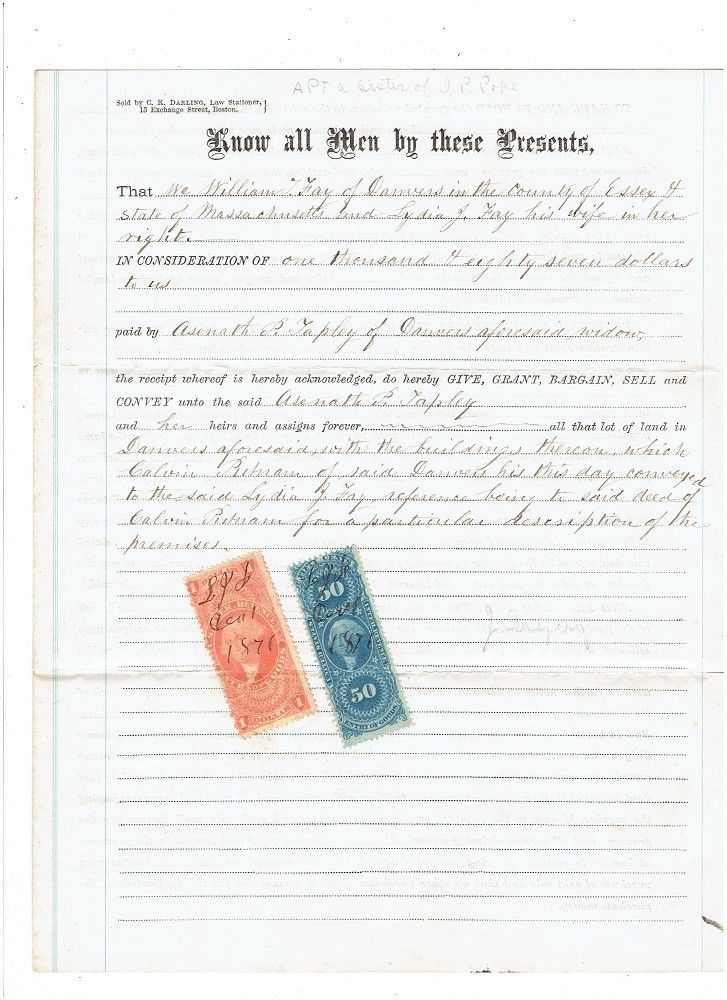 APT a sister of I. P. Pope
Sold by C. K. DARLING, Law Stationer,
15 Exchange Street, Boston.
Know all Men by these Presents,
That We William T. Fay of Danvers in the County of Essex &
State of Massachusetts and Lydia J. Fay his wife in her
right.
IN CONSIDERATION OF one thousand & eighty seven dollars
to us
paid by Asenath P. Tapley of Danvers aforesaid, widow,
the receipt whereof is hereby acknowledged, do hereby GIVE, GRANT, BARGAIN, SELL and
CONVEY unto the said Asenath P. Tapley
and her heirs and assigns forever, all that lot of land in
Danvers aforesaid, with the buildings thereon, which
Calvin Putnam of said Danvers has this day conveyed
to the said Lydia J. Fay, reference being to said deed of
Calvin Putnam for a particular description of the
premises.
L J F
1871
1
DOLLAR
1
L J F
1871
50
50
ENTRY OF GOODS